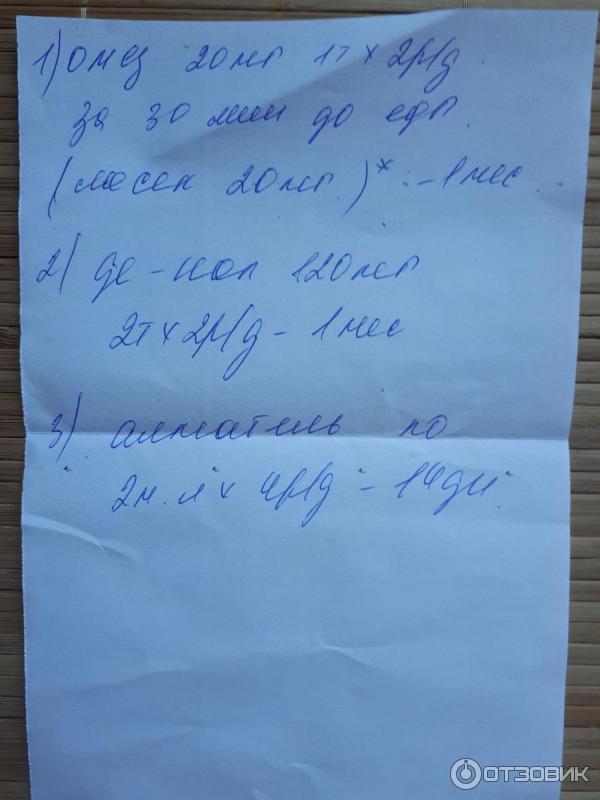 1) омез 20мг 1т х 2р/д.
за 30 мин до еды
(лосек 20мг.)* - 1 мес.
2) де-нол 120мг
2т х 2р/д - 1 мес
3) алмагель по
2м.л х 4р/д - 14дн.
ОТЗОВИК